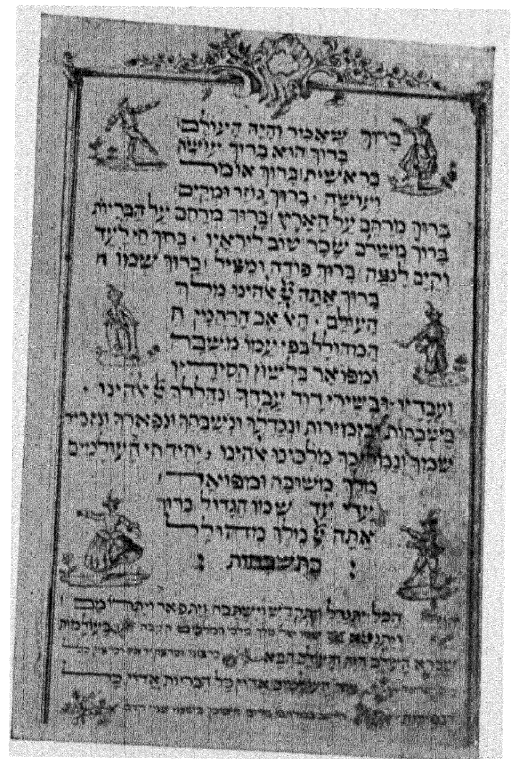 בָּרוּךְ שֶׁאָמַר וְהָיָה הָעוֹלָם
בָּרוּךְ הוּא בָּרוּךְ עוֹשֶׂה
בְּרֵאשִׁית בָּרוּךְ אוֹמֵר
וְעוֹשֶׂה · בָּרוּךְ גוֹזֵר וּמְקַיֵם
בָּרוּךְ מְרַחֵם עַל הָאָרֶץ בָּרוּךְ מְרַחֵם עַל הַבְּרִיּוֹת
בָּרוּךְ מְשַׁלֵּם שָׂכָר טוֹב לִירֵאָיו · בָּרוּךְ חַי לָעַד
וְקַיָּם לָנֶצַח בָּרוּךְ פּוֹדֶה וּמַצִּיל בָּרוּךְ שְׁמוֹ
בָּרוּךְ אַתָּה אֱלֹהֵינוּ מֶלֶךְ
הָעוֹלָם · הָאֵל אָב הָרַחֲמָן
הַמְהוּלָל בְּפִי עַמּוֹ מְשֻׁבָּח
וּמְפוֹאָר בִּלְשׁוֹן חֲסִידָיו
וַעֲבָדָיו · וּבְשִׁירֵי דָוִד עַבְדֶּךָ נְהַלֶּלְךָ אֱלֹהֵינוּ ·
בִּשְׁבָחוֹת וּבִזְמִירוֹת וּנְגַדֶּלְךָ וּנְשַׁבֵּחֲךָ וּנְפָאֶרְךָ וְנַזְכִּיר
שִׁמְךָ וְנַמְלִיכְךָ מַלְכֵּינוּ אֱלֹהֵינוּ יָחִיד חַי הָעוֹלָמִים
מֶלֶךְ מְשׁוּבָּח וּמְפוֹאָר
עֲדֵי עַד שְׁמוֹ הַגָּדוֹל בָּרוּךְ
אַתָּה מֶלֶךְ מְהוּלָל
בַּתִּשְׁבָּחוֹת :
הכל יתגדל ויתקדש וישתבח ויתפאר ויתרומם
ויתנשא שמו של מלך מלכי המלכים הקבה בעולמות
שברא העולם הזה והעולם הבא
אדון כל הבריות אלוה כל
הנפשות